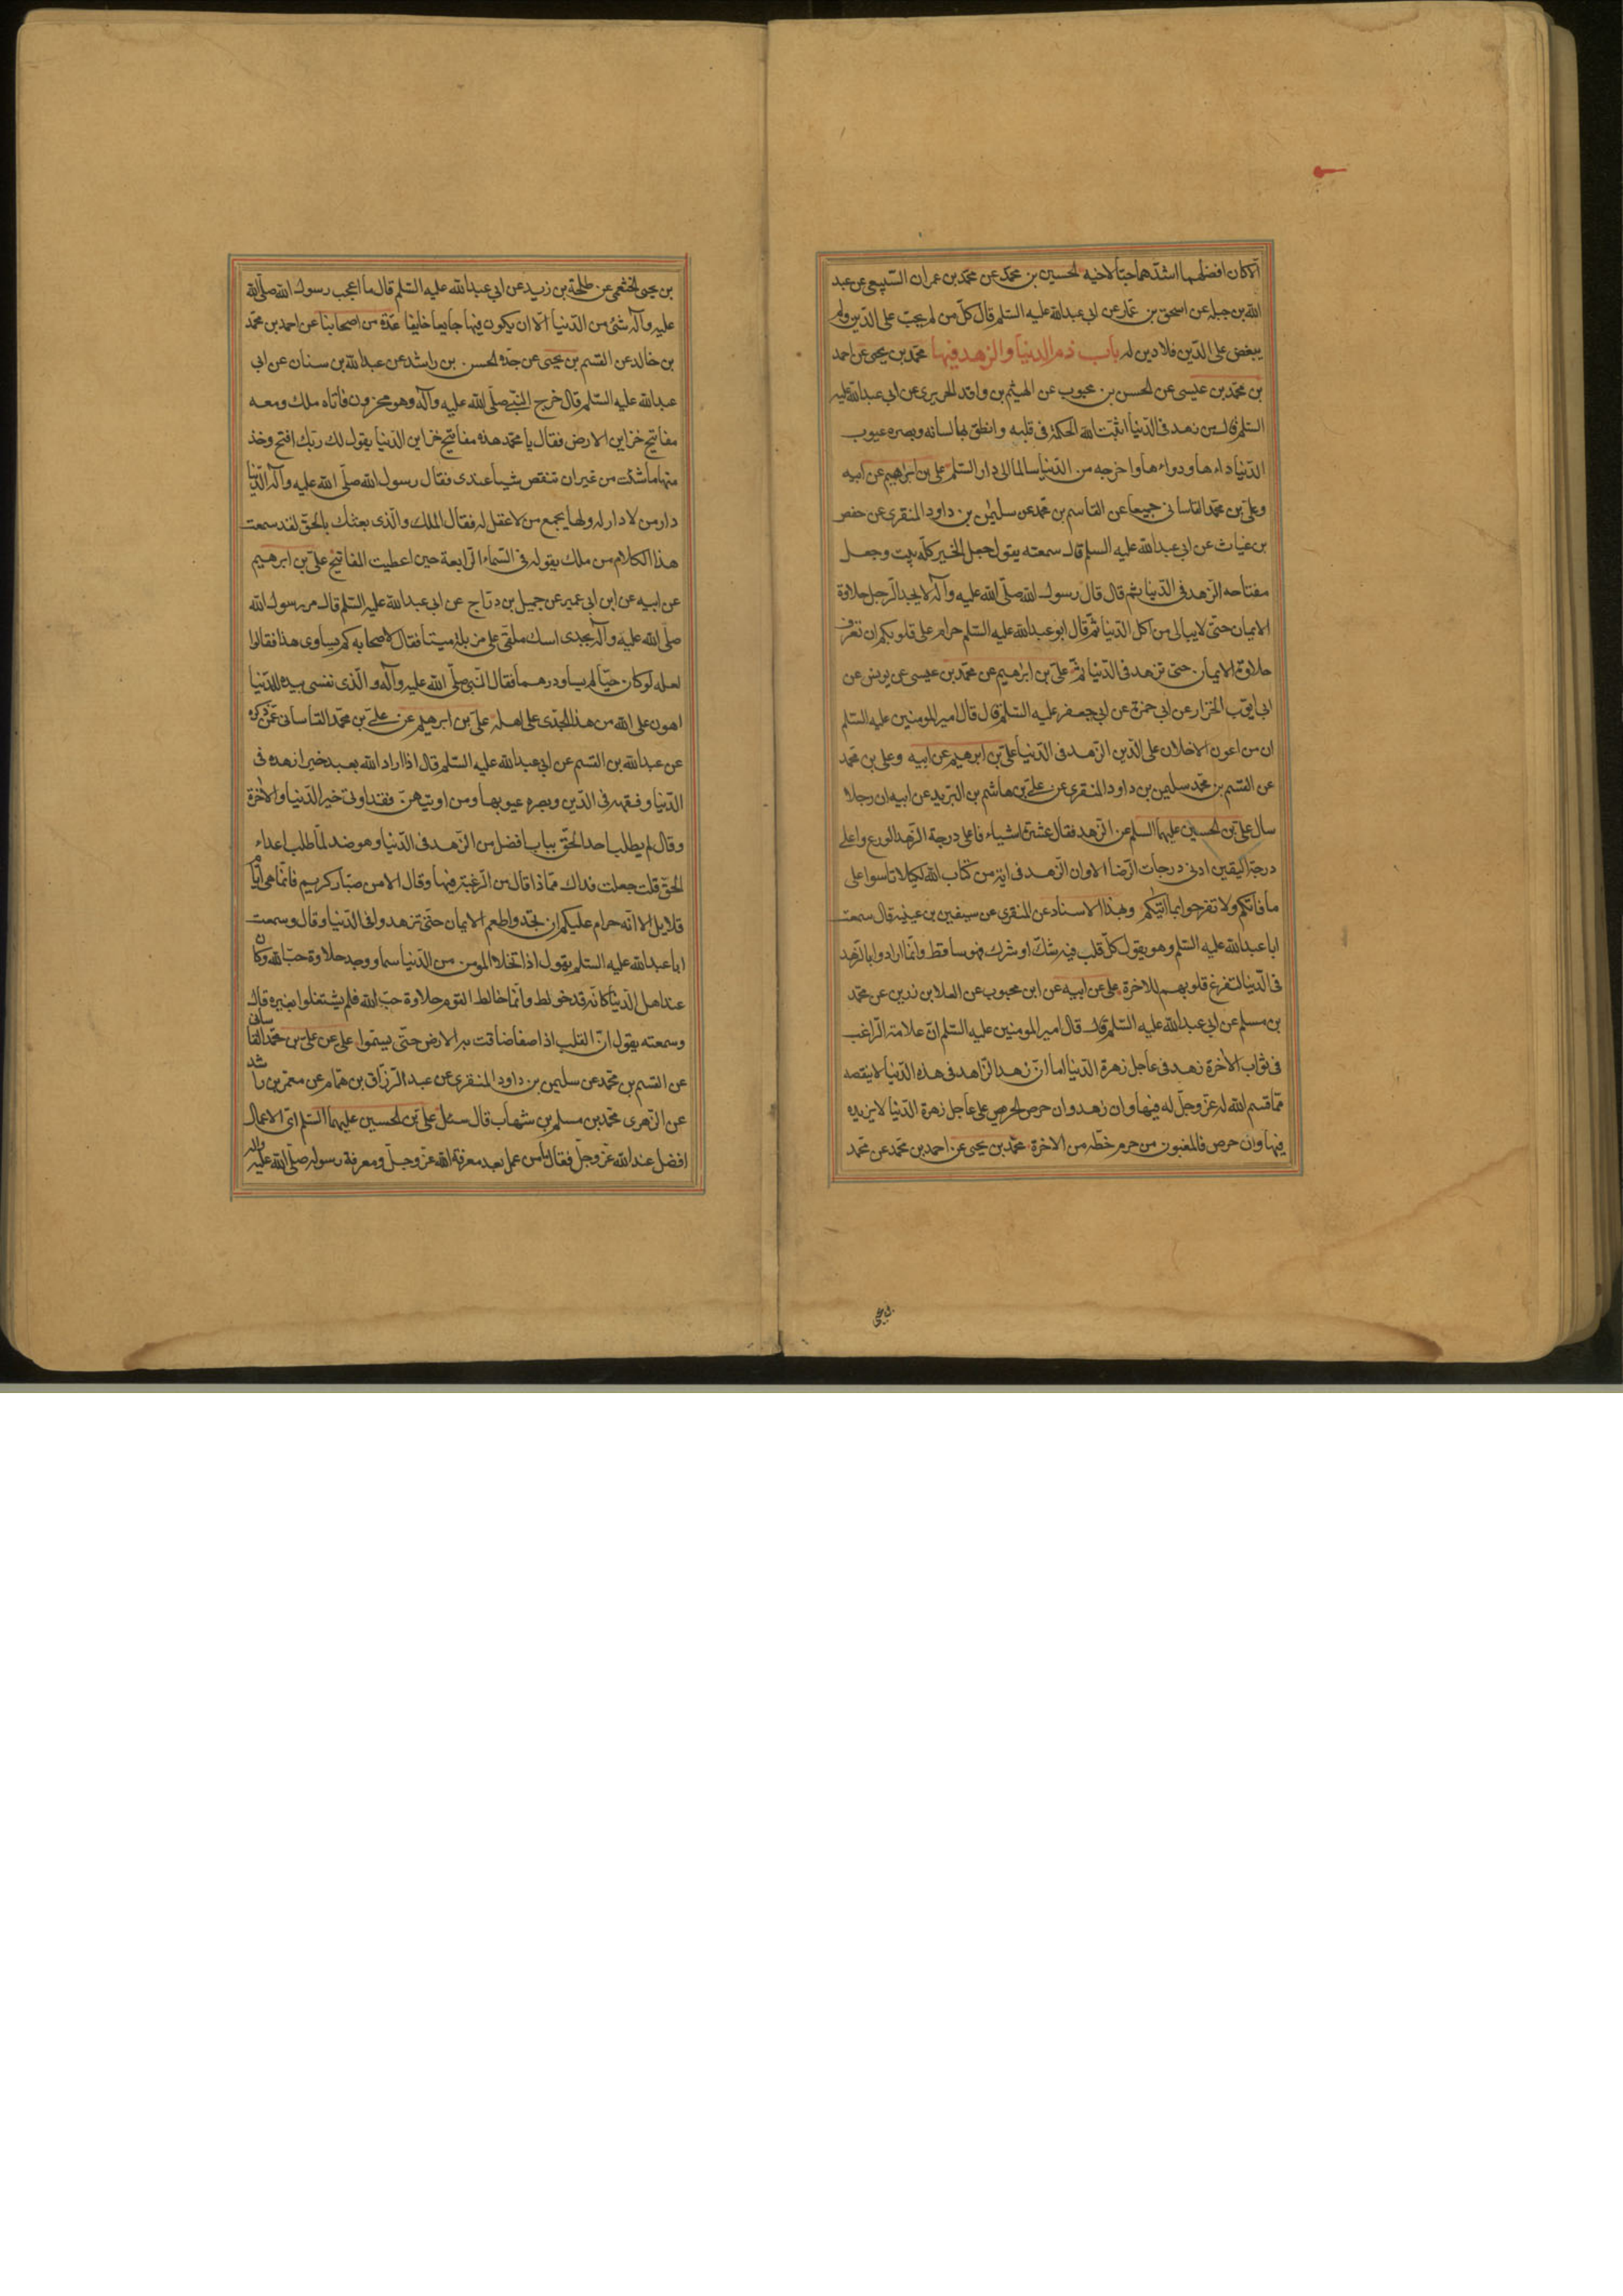 الا كان افضلهما اشدهما حبا لاخيه الحسين بن محمد عن محمد بن عمران السبيعى عن عبد
الله بن جبله عن اسحق بن عمار عن ابى عبدالله عليه السلم قال كل من لم يحب على الدين ولم
يبغض على الدين فلا دين له باب ذم الدنيا والزهد فيها محمد بن يحيى عن احمد
بن محمد بن عيسى عن الحسن بن محبوب عن الهيثم بن واقد الحريرى عن ابى عبدالله عليه
السلم قال من زهد فى الدنيا اثبت الله الحكمة فى قلبه وانطق بها لسانه وبصره عيوب
الدنيا داءها ودواءها واخرجه من الدنيا سالما الى دار السلم على بن ابرهيم عن ابيه
وعلى بن محمد القاسانى جميعا عن القاسم بن محمد عن سليمن بن داود المنقرى عن حفص
بن غياث عن ابى عبدالله عليه السلم قال سمعته يقول جعل الخير كله بيت وجعل
مفتاحه الزهد فى الدنيا ثم قال قال رسول الله صلى الله عليه وآله لا يجد الرجل حلاوة
الايمان حتى لا يبالى من اكل الدنيا ثم قال ابو عبدالله عليه السلم حرام على قلوبكم ان تعرف
حلاوة الايمان حتى تزهد فى الدنيا على بن ابرهيم عن محمد بن عيسى عن يونس عن
ابى ايوب الخزاز عن ابى حمزة عن ابى جعفر عليه السلم قال قال امير المومنين عليه السلم
ان من اعون الاخلاق على الدين الزهد فى الدنيا على بن ابرهيم عن ابيه وعلى بن محمد
عن القسم بن محمد سليمن بن داود المنقرى عن على بن هاشم بن البريد عن ابيه ان رجلا
سال على بن الحسين عليهما السلم عن الزهد فقال عشرة اشياء فاعلى درجة الزهد الورع واعلى
درجة اليقين ادنى درجات الرضا الا وان الزهد فى اية من كتاب الله لكيلا تاسوا على
ما فاتكم ولا تفرحوا بما اتيكم وبهذا الاسناد عن المنقرى عن سفين بن عيينه قال سمعت
ابا عبدالله عليه السلم وهو يقول كل قلب فيه شك او شرك فهو ساقط وانما ارادوا بالزهد
فى الدنيا لتفرغ قلوبهم للاخرة على عن ابيه عن ابن محبوب عن العلا بن رزين عن محمد
بن مسلم عن ابى عبدالله عليه السلم قال قال امير المومنين عليه السلم ان علامة الراغب
فى ثواب الاخرة زهد فى عاجل زهرة الدنيا اما ان زهد الزاهد فى هذه الدنيا لا ينقصه
مما قسم الله له عز وجل له فيها وان زهد وان حرص الحريص على عاجل زهرة الدنيا لا يزيده
فيها وان حرص فالمغبون من حرم حظه من الاخرة محمد بن يحيى عن احمد بن محمد عن محمد
بن يحيى
بن يحيى الخثعمى عن طلحة بن زيد عن ابى عبدالله عليه السلم قال ما اعجب رسول الله صلى الله
عليه وآله شئ من الدنيا الا ان يكون فيها جايعا خايفا عدة من اصحابنا عن احمد بن محمد
بن خالد عن القسم بن يحيى عن جده الحسن بن راشد عن عبدالله بن سنان عن ابى
عبدالله عليه السلم قال خرج النبى صلى الله عليه وآله وهو محزون فأتاه ملك ومعه
مفاتيح خزاين الارض فقال يا محمد هذه مفاتيح خزاين الدنيا يقول لك ربك افتح وخذ
منها ما شئت من غير ان تنقص شيا عندى فقال رسول الله صلى الله عليه وآله الدنيا
دار من لا دار له ولها يجمع من لا عقل له فقال الملك والذى بعثك بالحق لقد سمعت
هذا الكلام من ملك يقوله فى السماء الرابعة حين اعطيت المفاتيح على بن ابرهيم
عن ابيه عن ابن ابى عمير عن جميل بن دراج عن ابى عبدالله عليه السلم قال مر رسول الله
صلى الله عليه وآله بجدى اسك ملقى على مزبلة ميتا فقال لاصحابه كم يساوى هذا فقالوا
لعله لو كان حيا لم يساو درهما فقال النبى صلى الله عليه وآله والذى نفسى بيده للدنيا
اهون على الله من هذا الجدى على اهله على بن ابرهيم عن على بن محمد القاسانى عمن ذكره
عن عبدالله بن القسم عن ابى عبدالله عليه السلم قال اذا اراد الله بعبد خيرا زهده فى
الدنيا وفقهه فى الدين وبصره عيوبها ومن اوتيهن فقد اوتى خير الدنيا والاخرة
وقال لم يطلب احد الحق بباب افضل من الزهد فى الدنيا وهو ضد لما طلب اعداء
الحق قلت جعلت فداك مما ذا قال من الرغبة فيها وقال الا من صبار كريم فانما هى ايام
قلايل الا انه حرام عليكم ان تجدوا طعم الايمان حتى تزهدوا فى الدنيا وقال وسمعت
ابا عبدالله عليه السلم يقول اذا تخلا المومن من الدنيا سما ووجد حلاوة حب الله وكان
عند اهل الدنيا كانه قد خولط وانما خالط القوم حلاوة حب الله فلم يشتغلوا بغيره قال
وسمعته يقول ان القلب اذا صفا ضاقت به الارض حتى يسموا على عن على بن محمد القاسانى
عن القسم بن محمد عن سليمن بن داود المنقرى عن عبد الرزاق بن همام عن معمر بن راشد
عن الزهرى محمد بن مسلم بن شهاب قال سئل على بن الحسين عليهما السلم اى الاعمال
افضل عند الله عز وجل فقال ما من عمل بعد معرفة الله عز وجل ومعرفة رسوله صلى الله عليه وآله